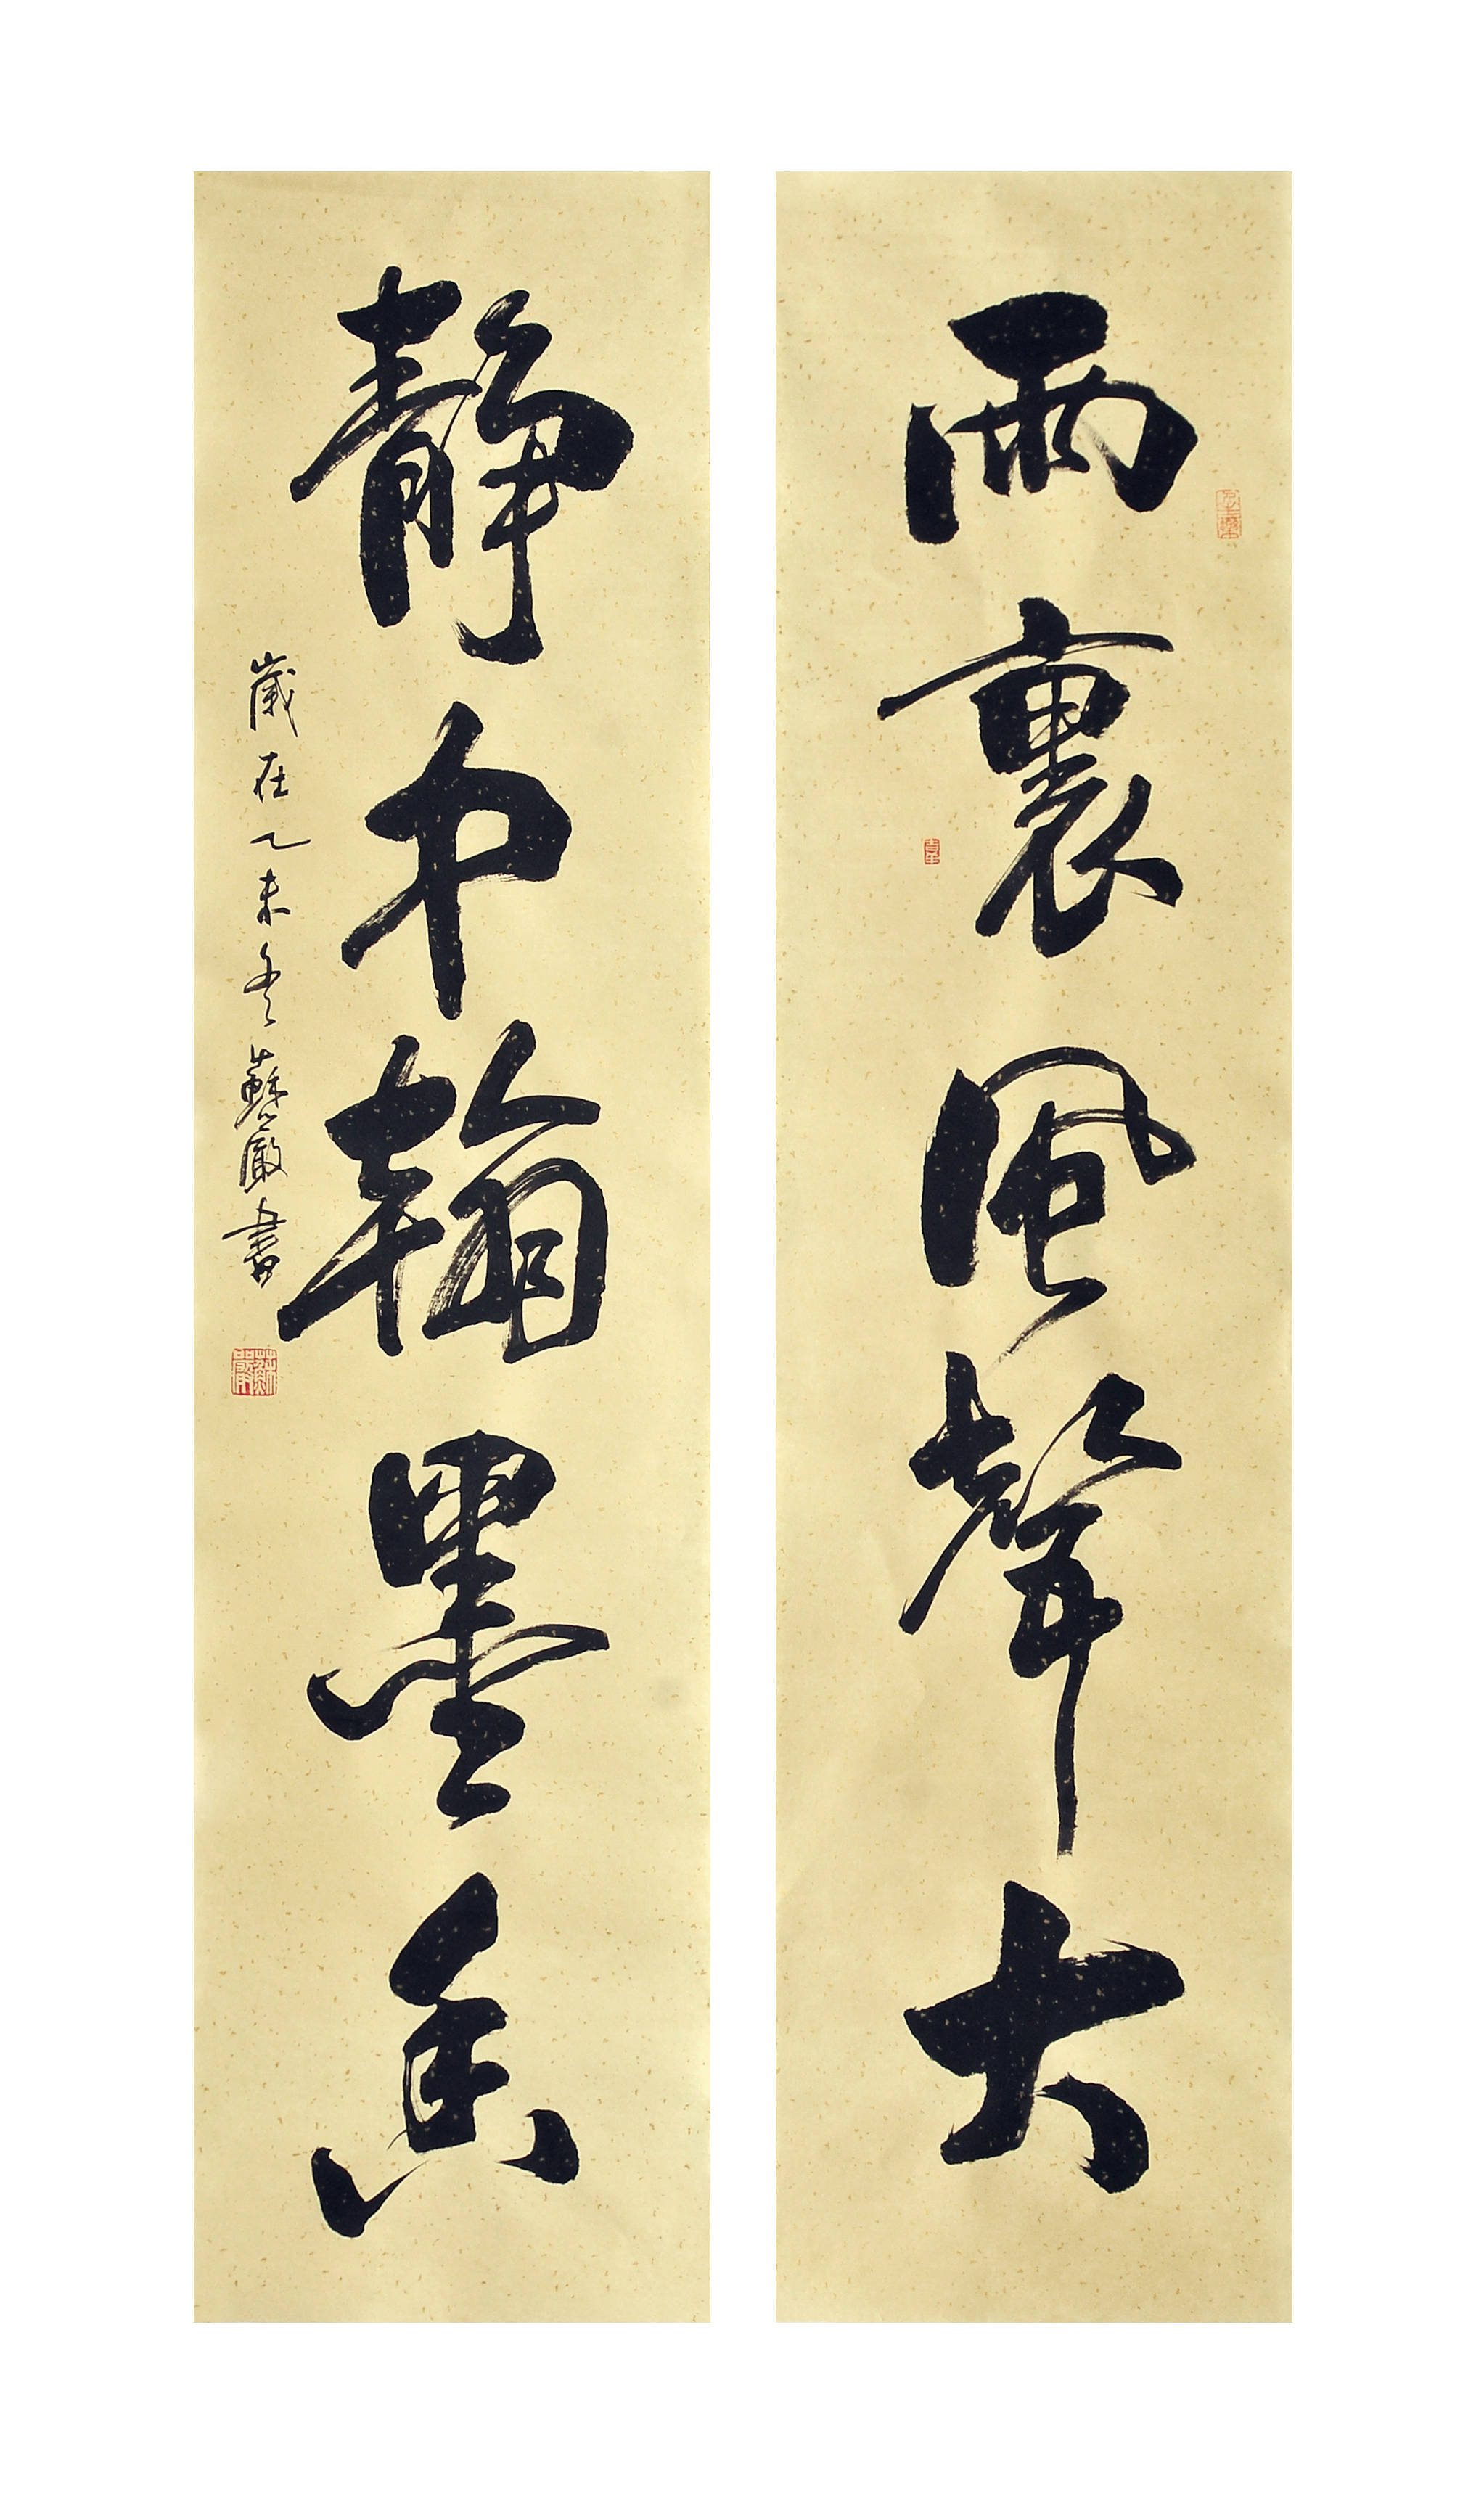 雨裏風聲大
靜中翰墨香
歲在乙未冬蘇嚴書
蘇嚴